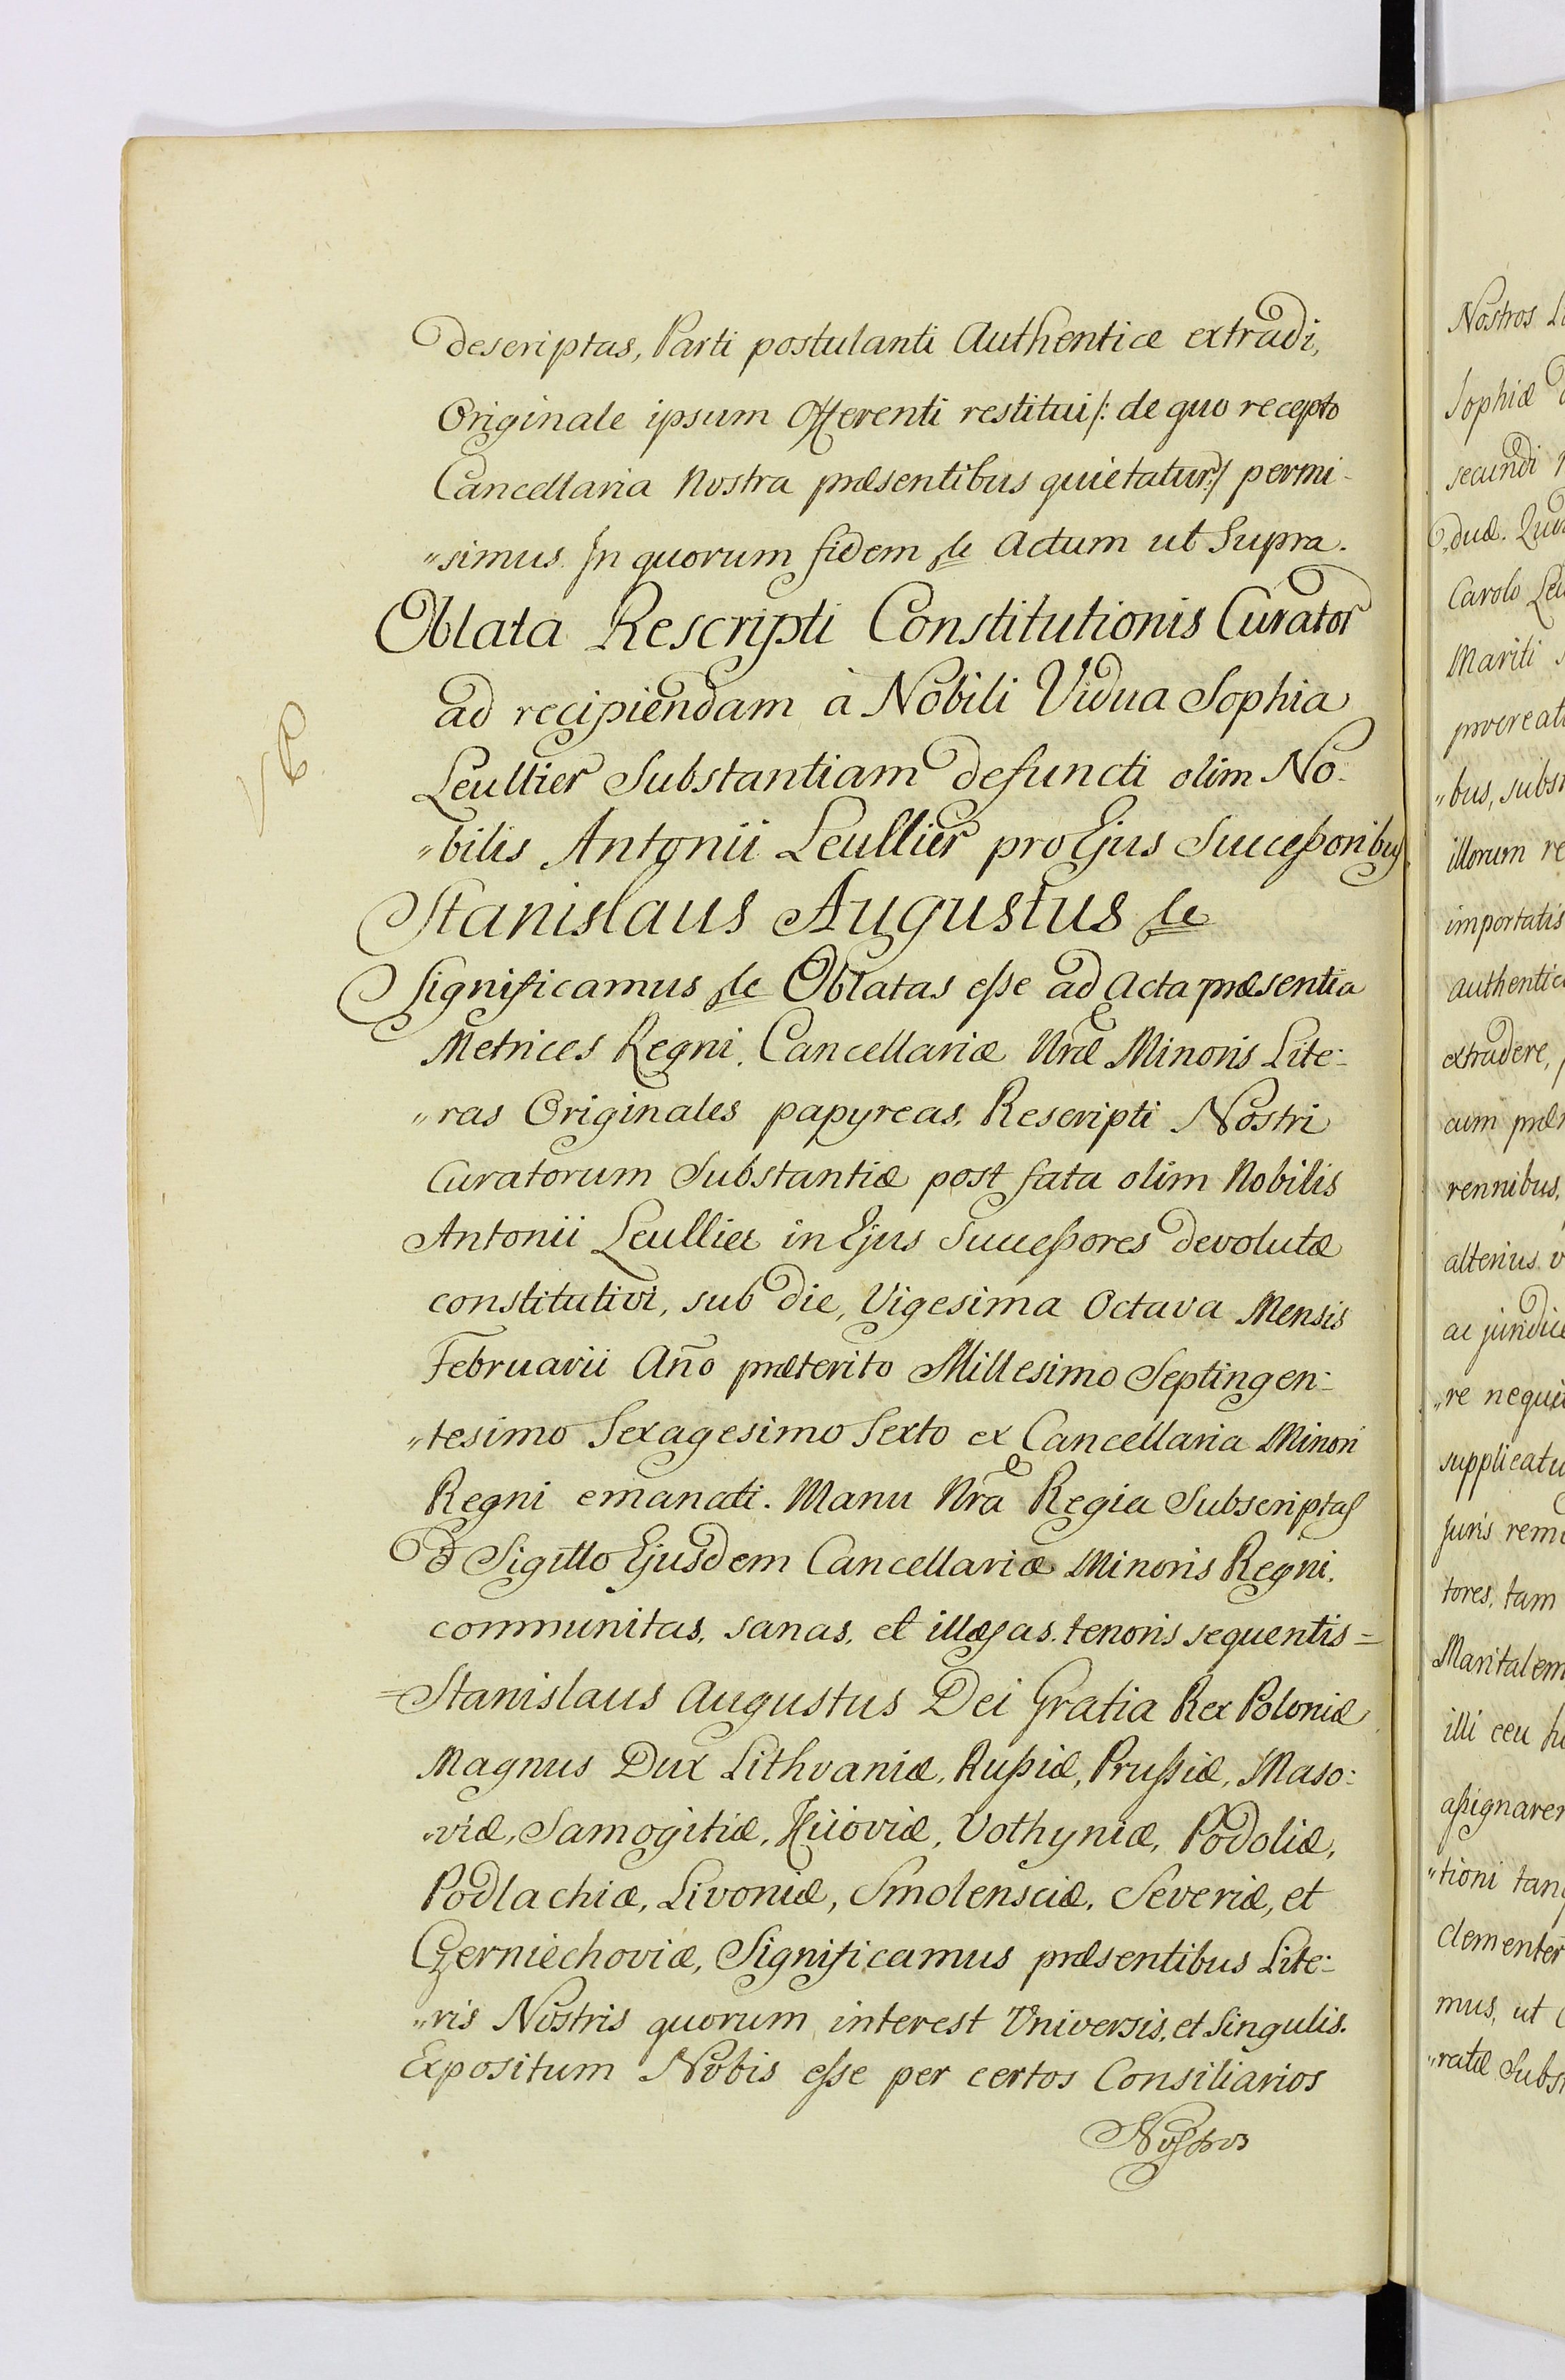 descriptas, Parti postulanti Authentice extradi,
Originale ipsum Offerenti restitui /: de quo recepto
Cancellaria Nostra præsentibus quietatur :/ permi-
„simus. In quorum fidem &c Actum ut Supra.
Oblata Rescripti Constitutionis Curator
ad recipiendam à Nobili Vidua Sophia
Leullier Substantiam defuncti olim No-
„bilis Antonii Leullier pro Ejus Successoribus
Stanislaus Augustus &c
Significamus &c Oblatas esse ad Acta præsentia
Metrices Regni, Cancellariæ Nræ Minoris Lite-
„ras Originales papyreas, Rescripti Nostri
Curatorum Substantiæ post fata olim Nobilis
Antonii Leullier in Ejus Successores devolutæ
constitutivi, sub die, Vigesima Octava Mensis
Februarii Año præterito Millesimo Septingen-
„tesimo Sexagesimo Sexto ex Cancellaria Minori
Regni emanati. Manu Nra Regia Subscriptas
& Sigillo Ejusdem Cancellariæ Minoris Regni.
communitas, sanas, et illæsas, tenoris sequentis =
= Stanislaus Augustus Dei Gratia Rex Poloniæ
Magnus Dux Lithvaniæ, Russiæ, Prussiæ, Maso-
„viæ, Samogitiæ, Kiioviæ, Volhyniæ, Podoliæ,
Podlachiæ, Livoniæ, Smolensciæ, Severiæ, et
Czerniechoviæ, Significamus præsentibus Lite-
„ris Nostris quorum interest Universis, et Singulis.
Expositum Nobis esse per certos Consiliarios
Nostros
Nostros
Sophiæ
secundi
„duæ.
Carolo
Mariti
procreat
„bus, subst
illorum re
importatis
authentic
extradere,
cum præ
rennibus,
alterius v
ac juridice
„re nequi
supplicatu
juris reme
tores, tam
Maritalem
illi ceu
assignarer
„tioni tan
Clementer
mus, ut
„ratæ Subst